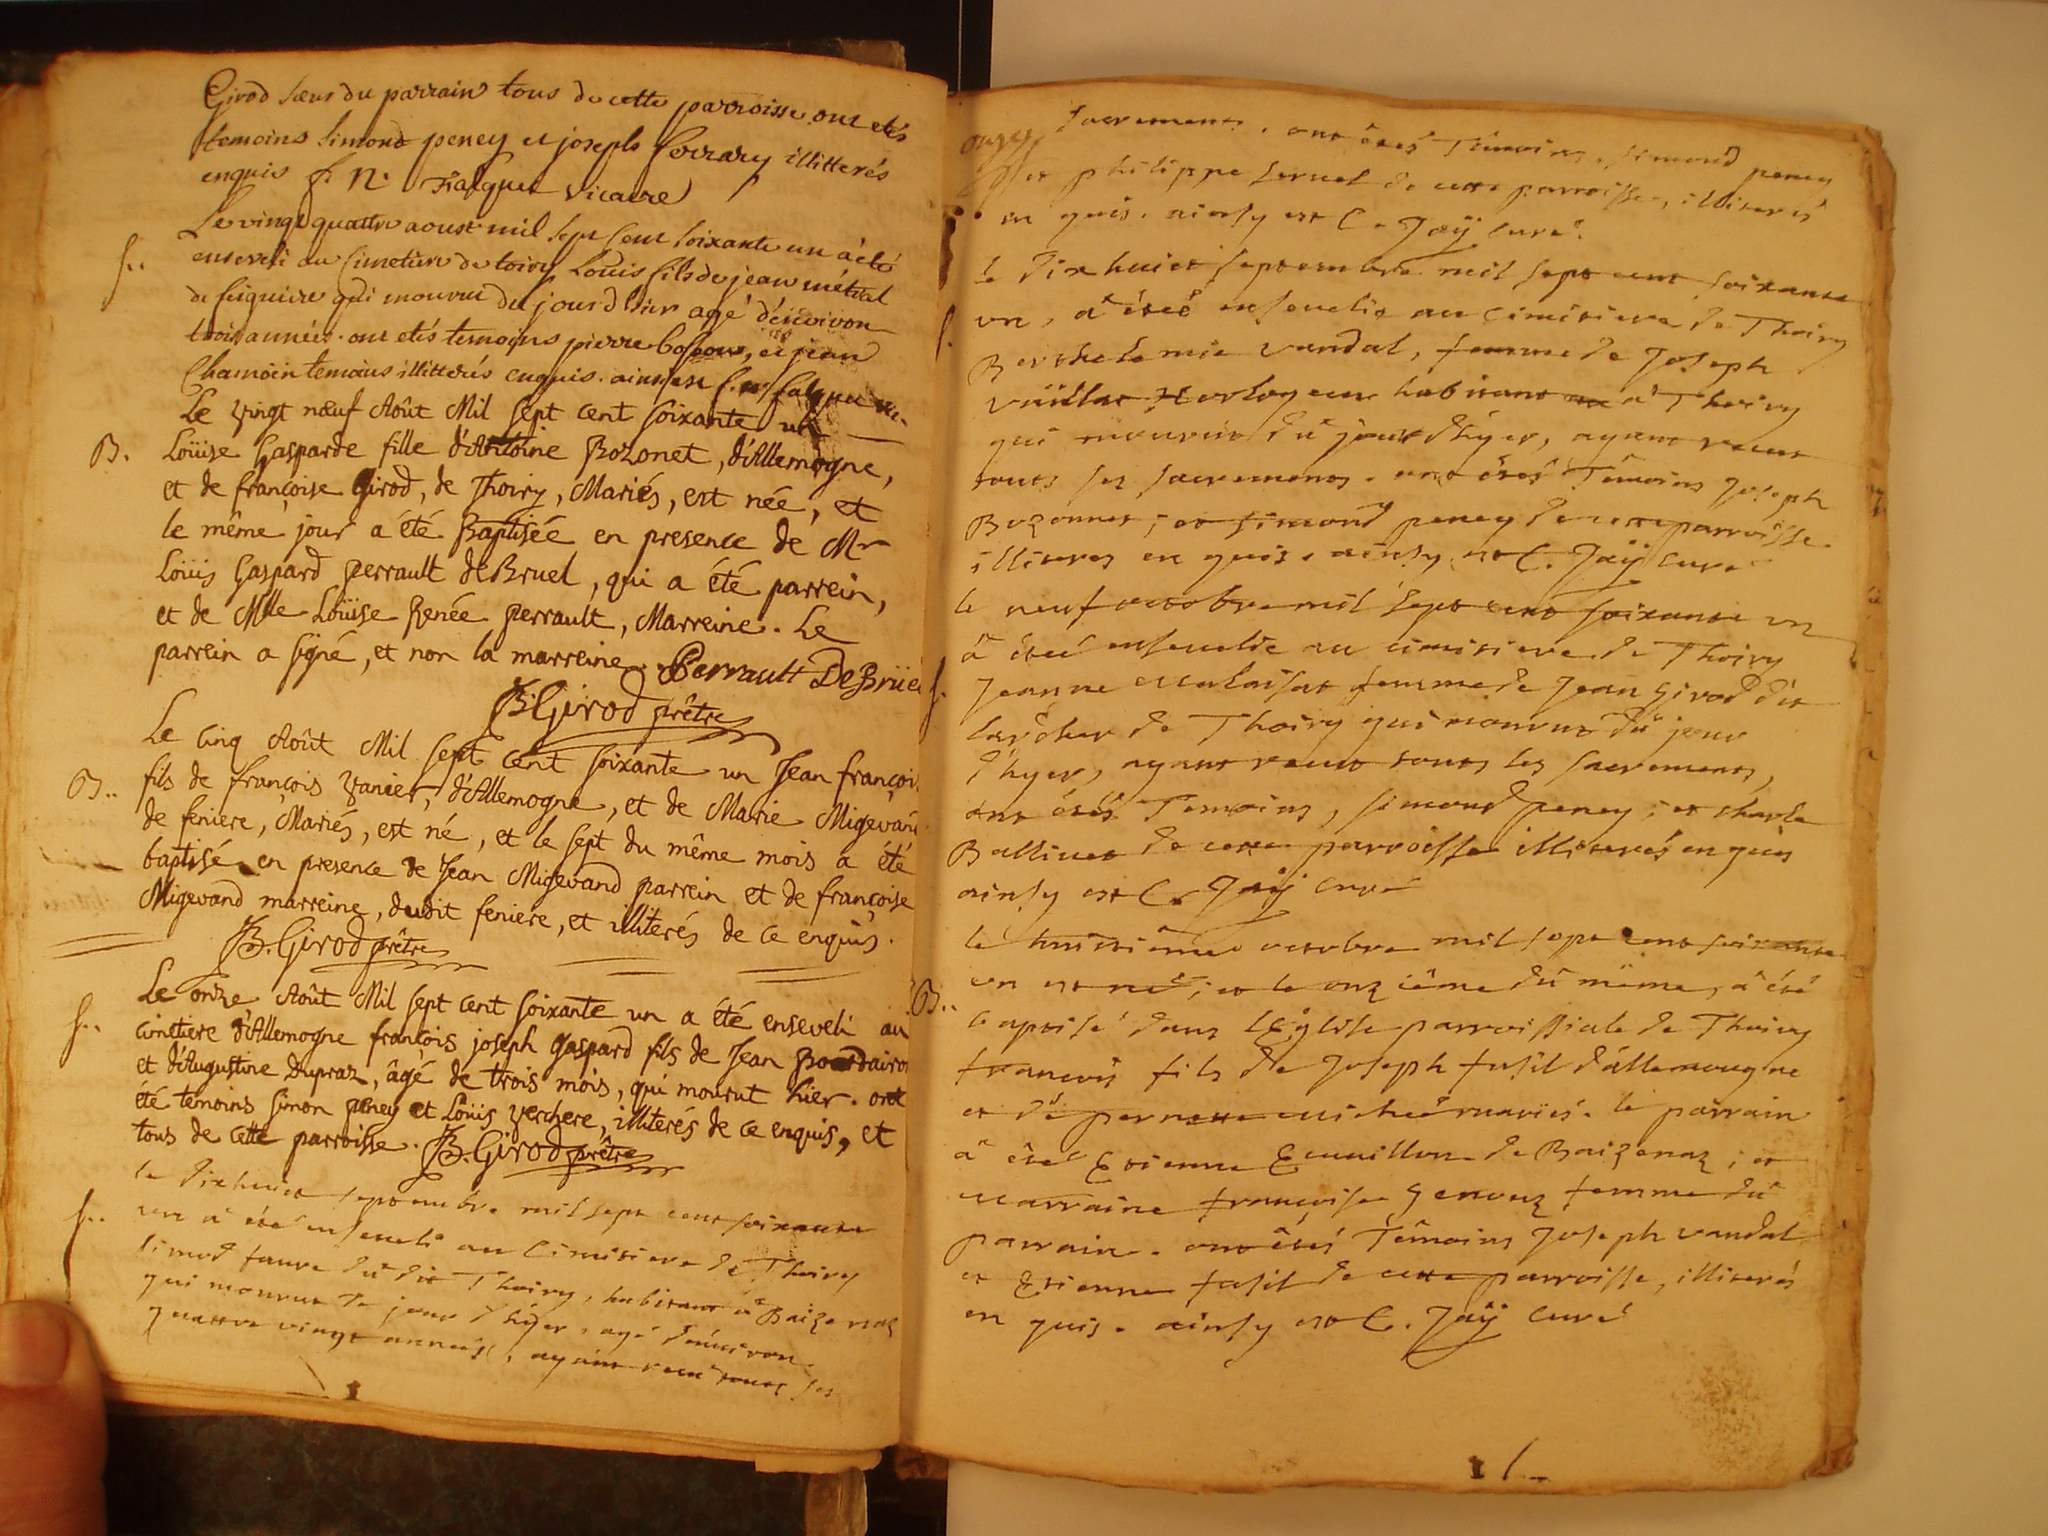 Girod sœur du parrain tous de cette parroisse ont etés
temoins simond peney et joseph ferrary illitterés
enquis f. n. falquet vicaire
Le vingt quattre aoust mil sept cent soixante un à eté
S..
enseveli au cimetiere de toiry Louis fils de jean métral
de feigniere qui mourut du jour d'hier agé d'environ
trois années. ont etés temoins pierre, et jean
Chamoin temoins illitterés enquis. ainsi est f. n. falquet vic.
Le vingt nœuf Août Mil sept cent soixante un
B.
Loüise Gasparde fille d'Antoine Bozonet, d'Allemogne,
et de françoise Girod, de Thoiry, Mariés, est née, et
le même jour a été Baptisée en presence de Mr
Loüis Gaspard perrault de Bruel, qui a été parrein,
et de Mlle Loüise Renée perrault, Marreine. Le
parrein a signé, et non la marreine. Perrault De Brüel
JB. Girod prêtre
Le cinq Août Mil sept cent soixante un Jean françois
B..
fils de françois Vanier, d'Allemogne, et de Marie Migevand
de feniere, Mariés, est né, et le sept du même mois a été
baptisé en presence de Jean Migevand parrein et de françoise
Migevand marreine, dudit feniere, et illitérés de ce enquis.
JB. Girod prêtre
Le onze Août Mil sept cent soixante un a été enseveli au
S..
cimetiere d'Allemogne françois joseph Gaspard fils de Jean Bourdairon
et d'Augustine Dupraz, âgé de trois mois, qui mourut hier. ont
été temoins simon peney et Loüis Verchere, illitérés de ce enquis, et
tous de cette parroisse. JB. Girod prêtre
le dixhuict septembre mil sept cent soixante
S..
un â êté enseveli au cimitiere de Thoiry
simod favre du dit Thoiry, habitant â Baizenaz
qui mourut de jour d'hÿer, agé d'environ
quattre vingt années, ayant reçu touts ses
sacrements. ont êtés Têmoins, simond peney
et philippe de cette parroisse, illiterés
en quis. ainsy est C. Jaÿ curé.
le dixhuict septembre mil sept cent soixante
S.
un, â étéé ensevelie au cimitiere de Thoiry
Berthelemie vandal, femme de Joseph
vüillet Horlogeur habitant â Thoiry
qui mourut dû jour d'hÿer, ayant reçut
touts ses sacrements. ont êtés Têmoins Joseph
Bozonnet; et simond peney de cette parroisse
illiteres en quis. ainsy est C. Jaÿ curé
le neuf octobre mil sept cent soixante un
â étéé ensevelie au cimitiere de Thoiry
S.
Jeanne femme de Jean Girod dit
de Thoiry qui mourut dû jour
d'hyer, ayant reçut touts les sacrements,
ont étés Temoins, simond peney; et charle
Ballivet de cette parroisse illiterés en quis
ainsy est C. Jaÿ curé
le huitiême octobre mil sept cent soixante
un est né; et le onziême dû même, â été
B..
baptisé dans l'Eglise parroissiale de Thoiry
francois fils de Joseph fusil d'allemougne
et de pernette michod mariés. le parrain
â êté Etienne Ecuuillon de Baizenaz; et
marraine françoise Genouz femme dû
parrain. ont êtés Têmoins Joseph vandal
et Etienne fusil de cette parroisse, illiterés
en quis. ainsy est C. Jaÿ curé